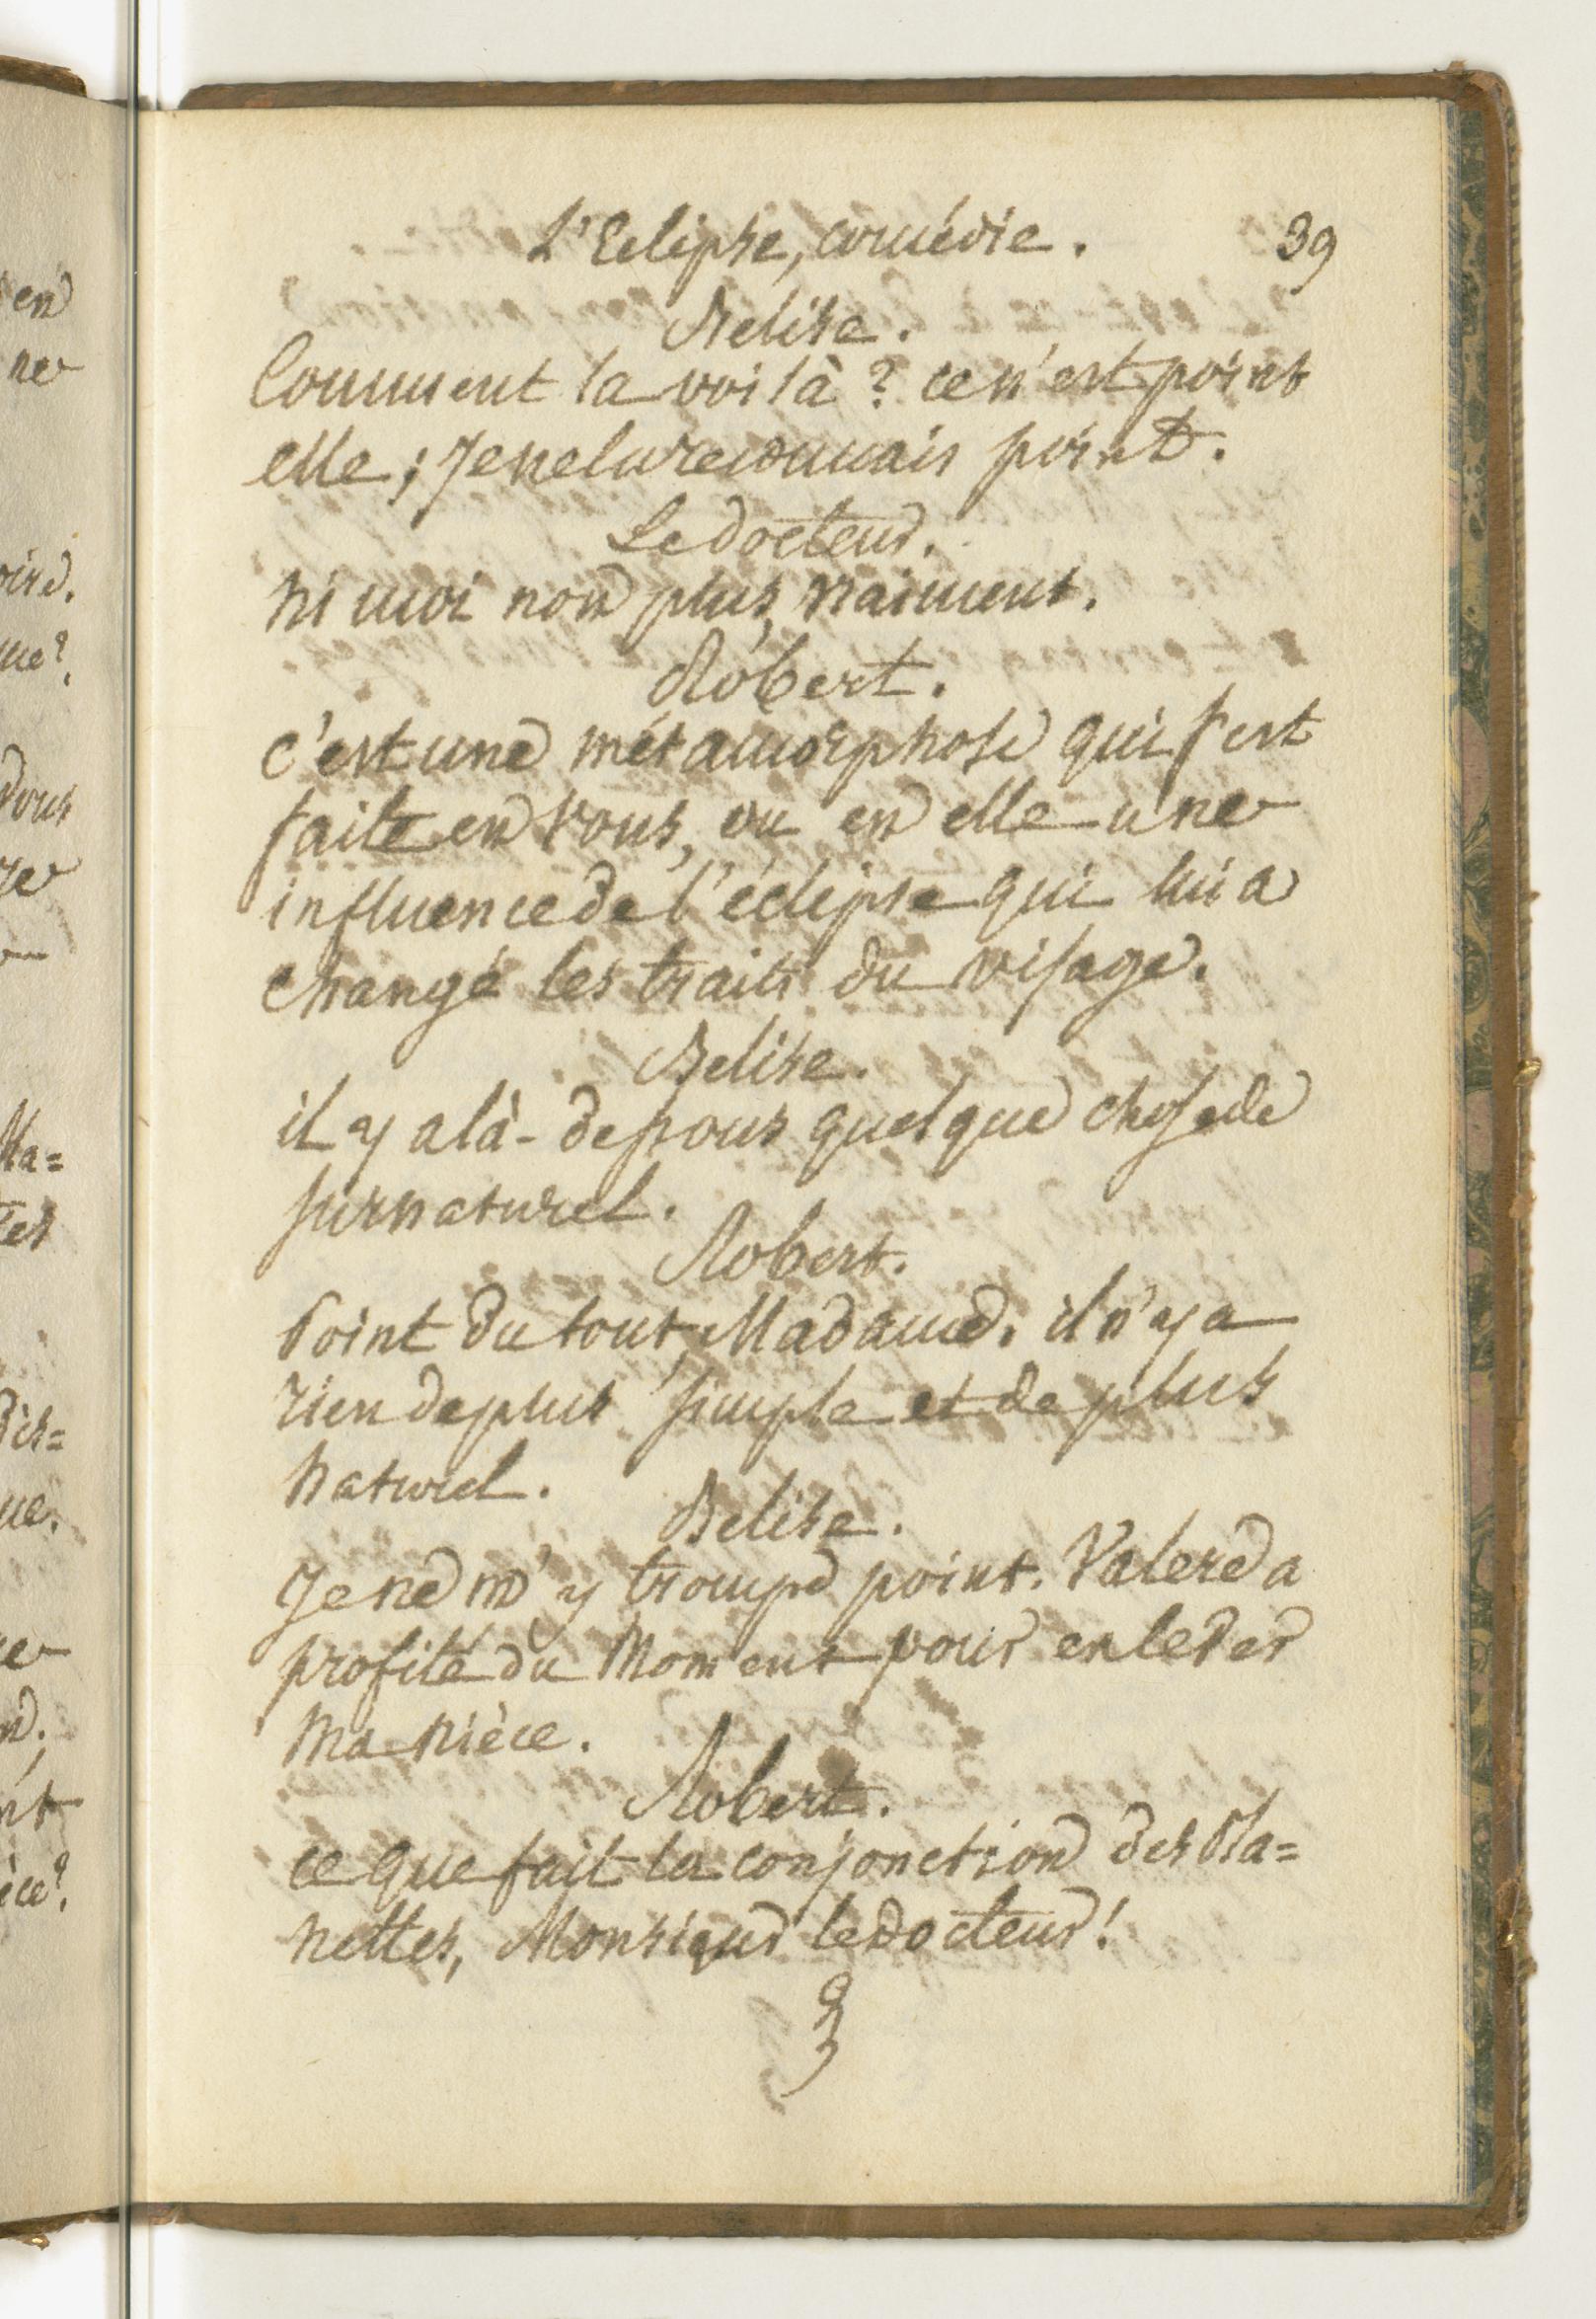 L'Eclipse, comédie. 39
Belise.
Comment la voilà? ce n'est point
elle; Je ne la reconnais point.
Le docteur.
ni moi non plus, vraiment.
Robert.
c'est une métamorphose qui s'est
faite en vous, ou en elle une
influence de l'éclipse qui lui a
changé les traits du visage.
Belise.
il y a là-dessous quelque chose de
surnaturel.
Robert.
Point du tout, Madame. il n'y a
rien de plus simple et de plus
naturel.
Belise.
Je ne m'y trompe point. Valere a
profité du moment pour enlever
ma nièce.
Robert.
ce que fait la conjonction des Pla=
nettes, Monsieur le docteur!
en
ne
oir.
me?
vous
je
Ma=
tes
dis=
ue.
ce
n.
nt
èce?